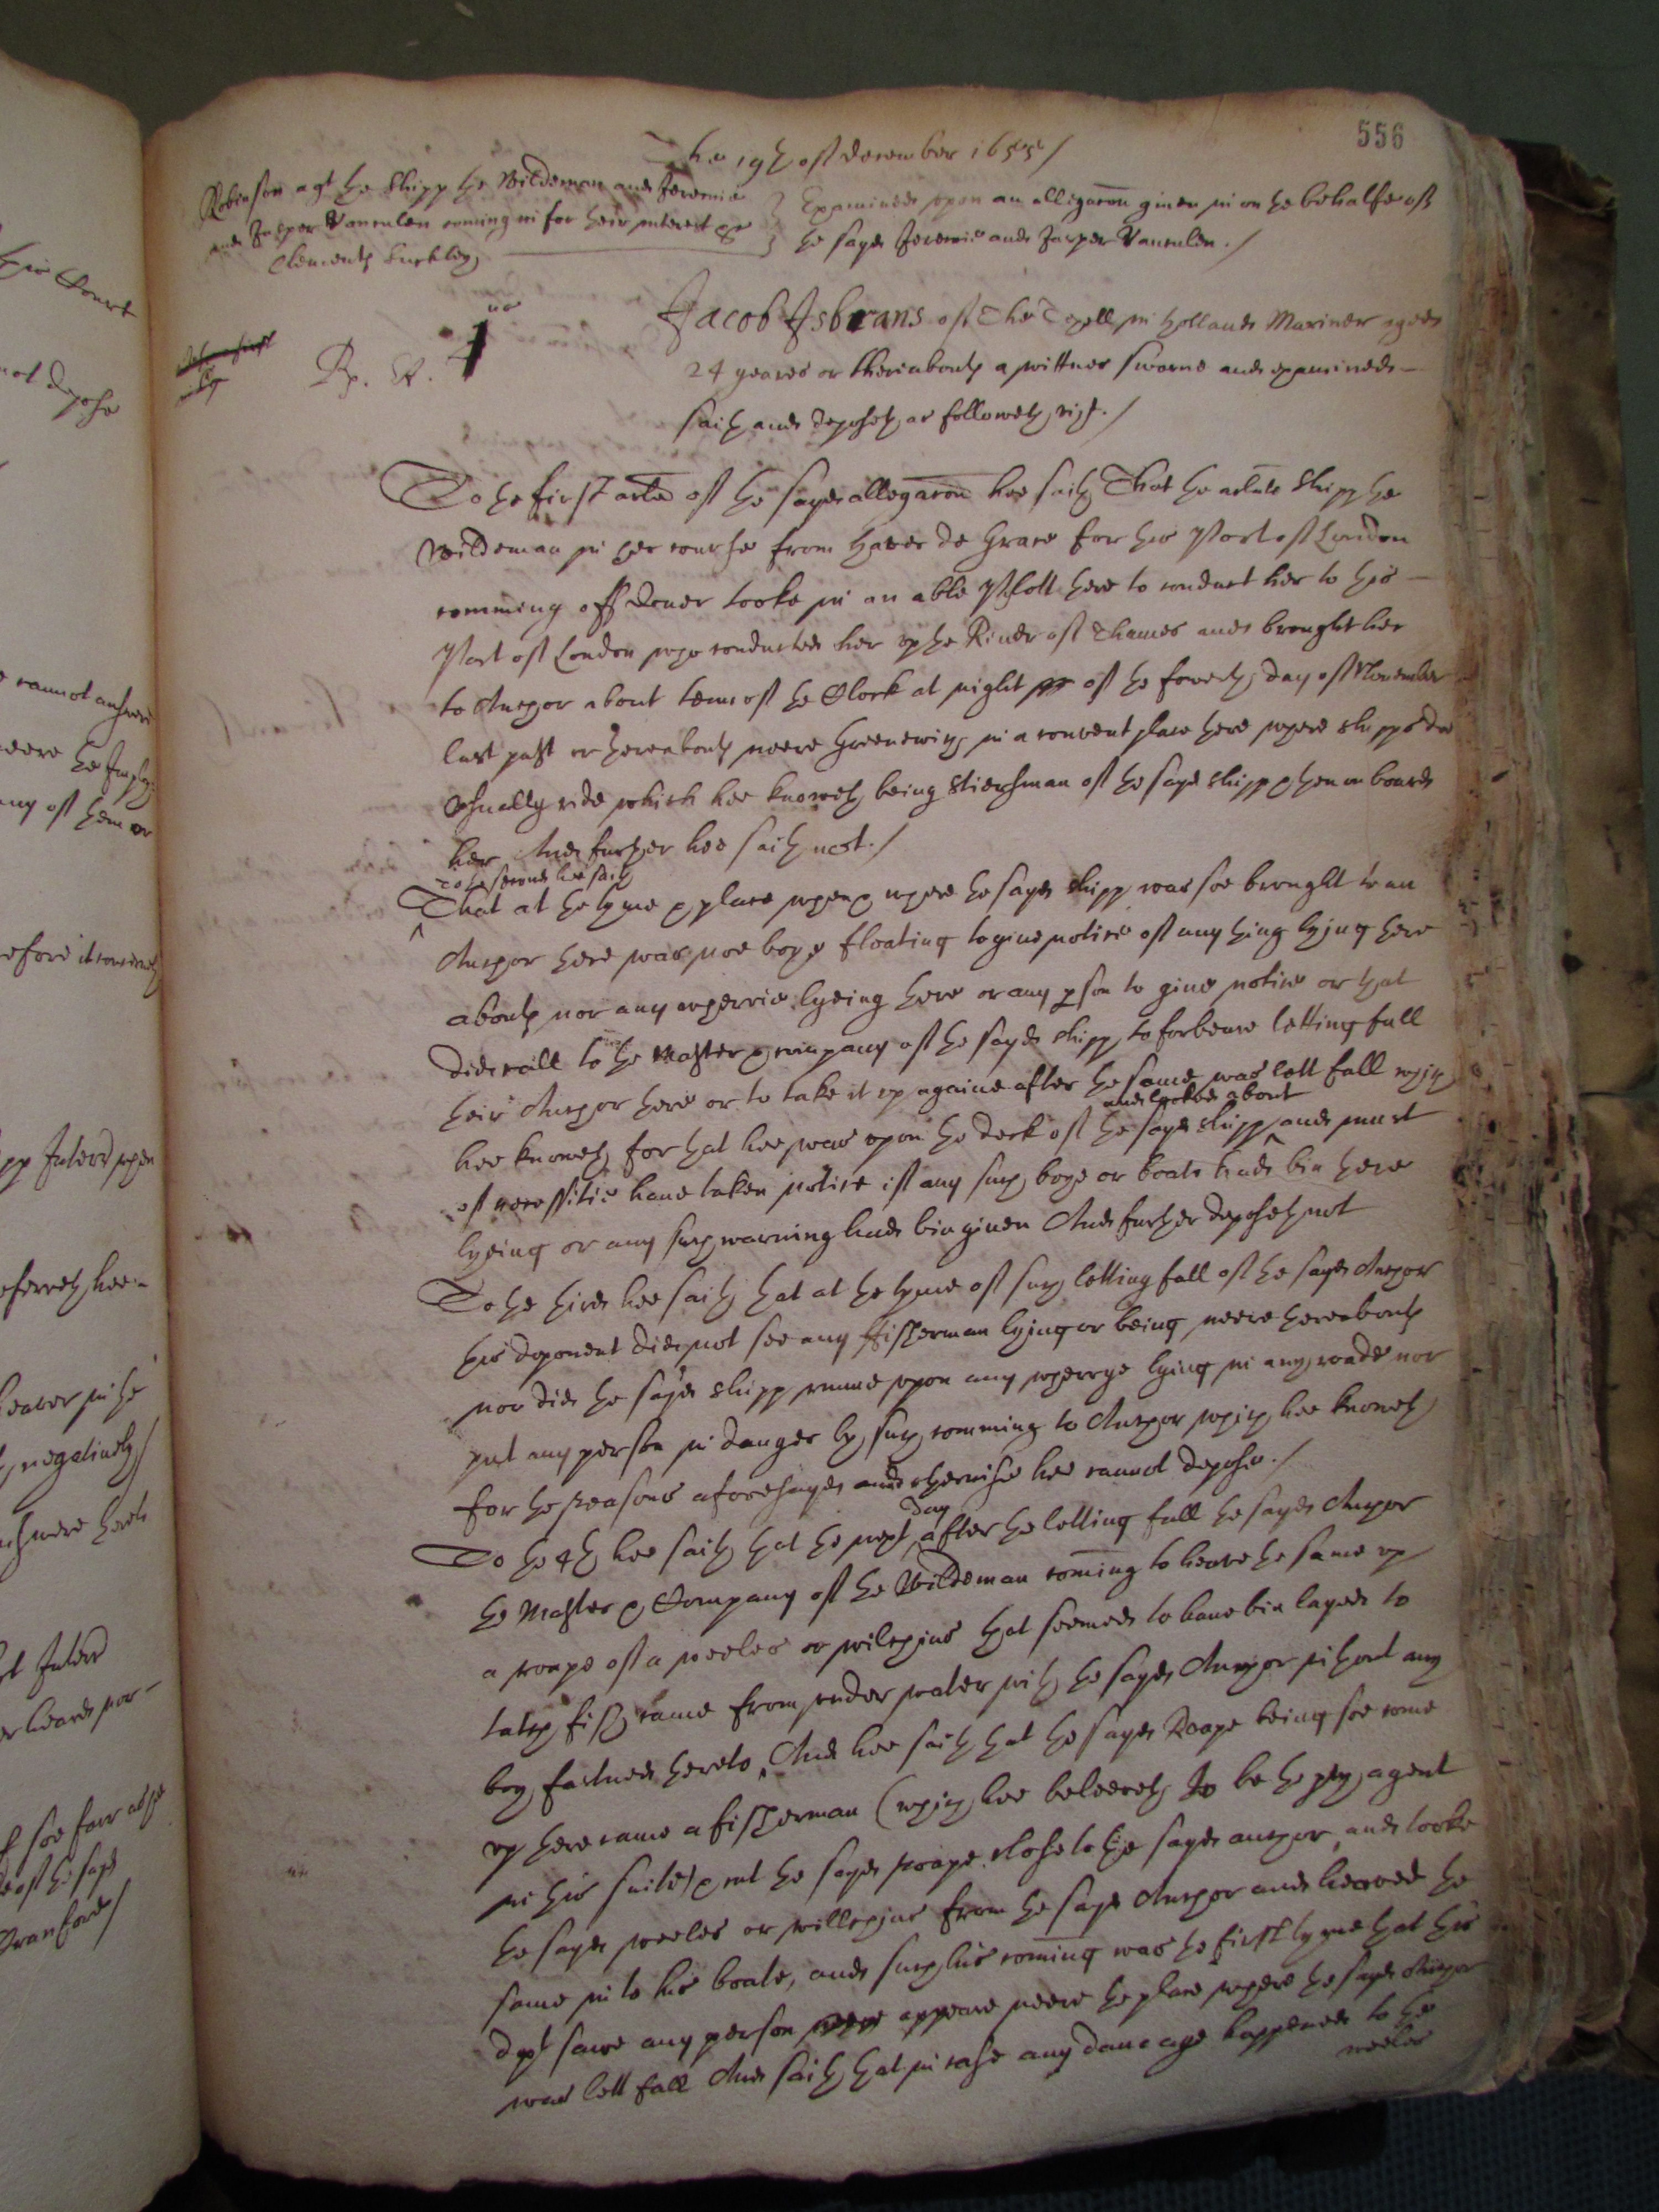 556
The 19th of december 1655 /
Robinson agt the Shipp the Wildeman and Jeremie
and Jasper Vanculen coming in for their interest &c
Clements Buckley
Examined upon an allegacon given in on the behalfe of
the sayd Jeremie and Jasper Vanculen. /
Rp. A. 1us
Jacob Isbrans of The Texell in holland Mariner aged
24 yeares or thereabouts a wittnes sworne and examined
saith and deposeth as followeth, vizt. /
To the first arle of the sayd allegacon hee saith That the arlate shipp the
Wildeman in her course from Haver de Grace for this Port of London
comming off Dover tooke in an able Pylott there to conduct her to this
Port of London who conducted her up the River of Thames and brought her
to Anchor about tenn of the Clock at night of the fowerth day of November
last past or thereabouts neere Greenewich in a convent place there where shipps doe
usually ride which hee knoweth being Stiersman of the sayd shipp & then on board
her And further hee saith not. /
To the second hee saith
That at the tyme & place when & where the sayd shipp was soe brought to an
Anchor there was noe boye floating to give notice of any thing lying there
abouts nor any wherrie lyeing there or any pson to give notice or that
did call to the Master & company of the sayd shipp to forbeare letting fall
their Anchor there or to take it up againe after the same was lett fall which
and looked about
hee knoweth for that hee was upon the deck of the sayd shipp and must
of necessitie have taken notice if any such boye or boate had bin there
lyeing or any such warning had bin given And further deposeth not
To the third hee saith that at the tyme of such letting fall of the sayd Anchor
this deponent did not see any fisherman lying or being neere thereabouts
nor did the sayd shipp runne upon any wherrye lying in any roade nor
put any person in danger by such comming to Anchor which hee knoweth
for the reasons aforesayd and otherwise hee cannot depose. /
day
To the 4th hee saith that the next after the letting fall the sayd Anchor
the Master & Company of the Wildeman coming to heave the same up
a roape of a weeles or wilchins that seemed to have bin layed to
catch fish came from under water with the sayd Anchor without any
boy fastned thereto, And hee saith that the sayd Roape being soe come
up there came a fisherman (which hee beleeveth to be the pty agent
in this suite) & cut the sayd roape close to the sayd anchor, and tooke
the sayd weeles or willchins from the sayd Anchor and heaved the
same in to his boate, and such his coming was the first tyme that this
dept sawe any person appeare neere the place where the sayd Anchor
was lett fall And saith that in case any damage happened to the
weeles